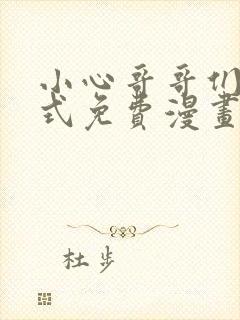 小心哥哥们
式免費漫畫
杜步